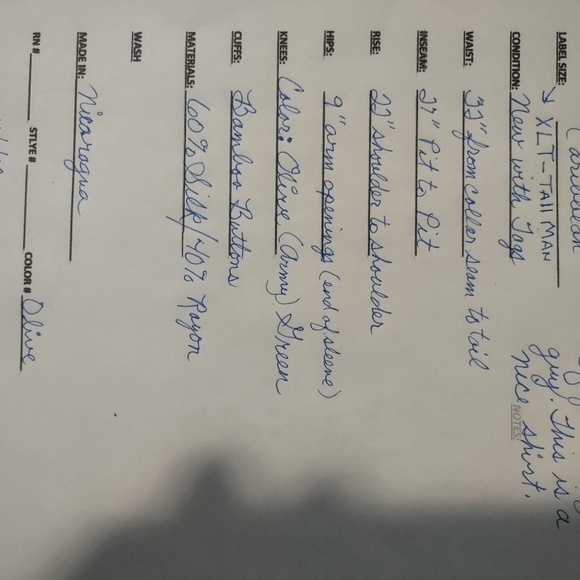 Caribbean
LABEL SIZE: → XLT-Tall MAN
CONDITION: New with Tags
WAIST: 33" from collar seam to tail
INSEAM: 27" Pit to Pit
RISE: 22" shoulder to shoulder
HIPS: 9" arm openings (end of sleeve)
KNEES: Color: Olive (Army) Green
CUFFS: Bamboo Buttons
MATERIALS: 60% Silk/40% Rayon
WASH
MADE IN: Nicaragua
RN # STLYE # COLOR # Olive
guy. This is a
nice shirt.
NOTES: